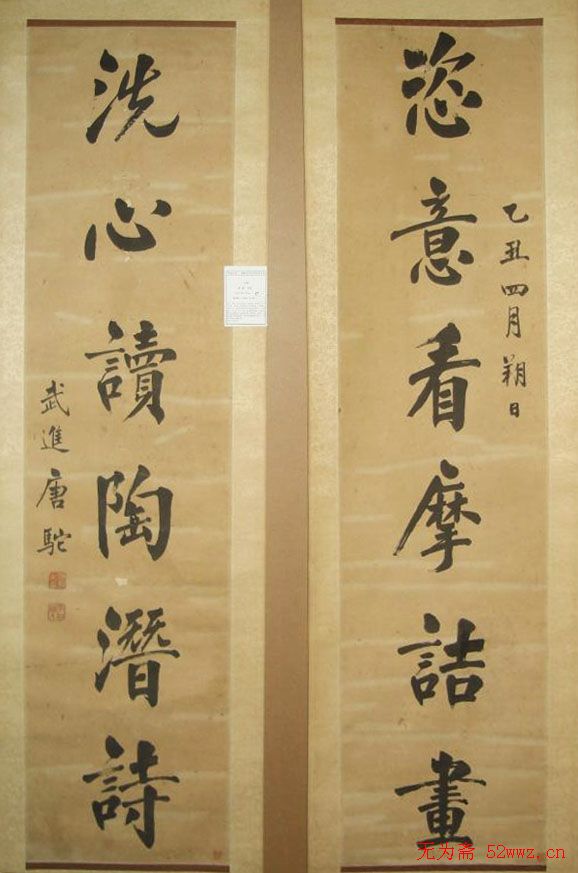 恣意看摩詰畫
乙丑四月朔日
洗心讀陶潛詩
武進唐駝
无为斋 52wwz.cn